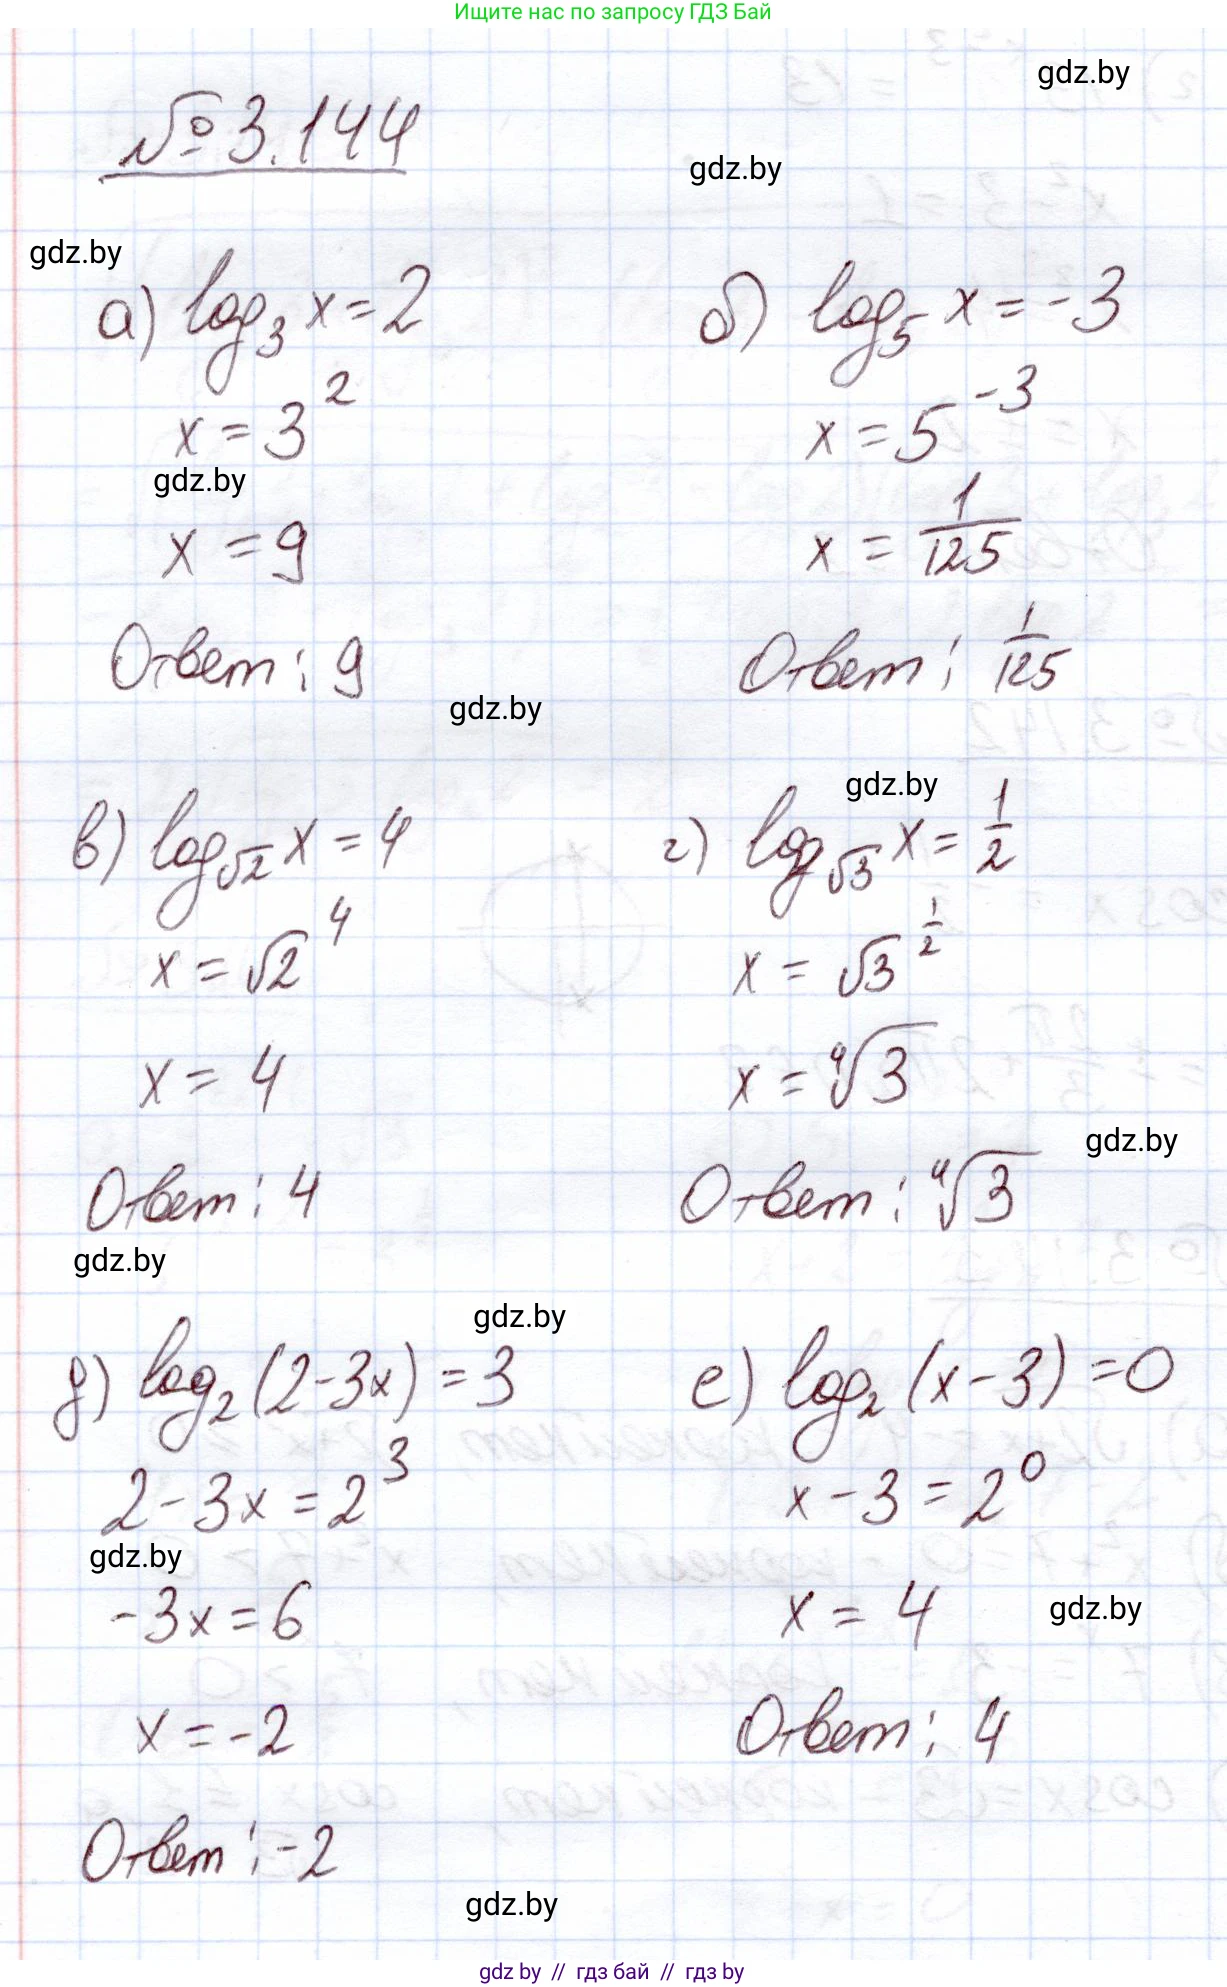 Ищите нас по запросу ГДЗ Бай
gdz.by
№ 3.144
gdz.by
gdz.by
а) log₃ x = 2
x = 3²
gdz.by
x = 9
Ответ: 9
б) log₅ x = -3
x = 5⁻³
x = 1/125
Ответ: 1/125
gdz.by
в) log_√2 x = 4
x = √2⁴
x = 4
Ответ: 4
gdz.by
gdz.by
г) log_√3 x = 1/2
x = √3^(1/2)
x = ⁴√3
gdz.by
Ответ: ⁴√3
gdz.by
д) log₂ (2-3x) = 3
2-3x = 2³
gdz.by
-3x = 6
x = -2
Ответ: -2
е) log₂ (x-3) = 0
x-3 = 2⁰
x = 4
gdz.by
Ответ: 4
gdz.by
gdz by // гдз бай // гдз by